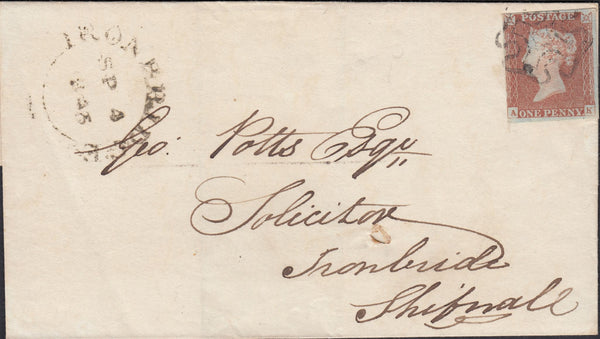 IRONBRIDGE
SP 4
1845
POSTAGE
A ONE PENNY K
Geo. Potts Esqr
Solicitor
Ironbride
Shifnall